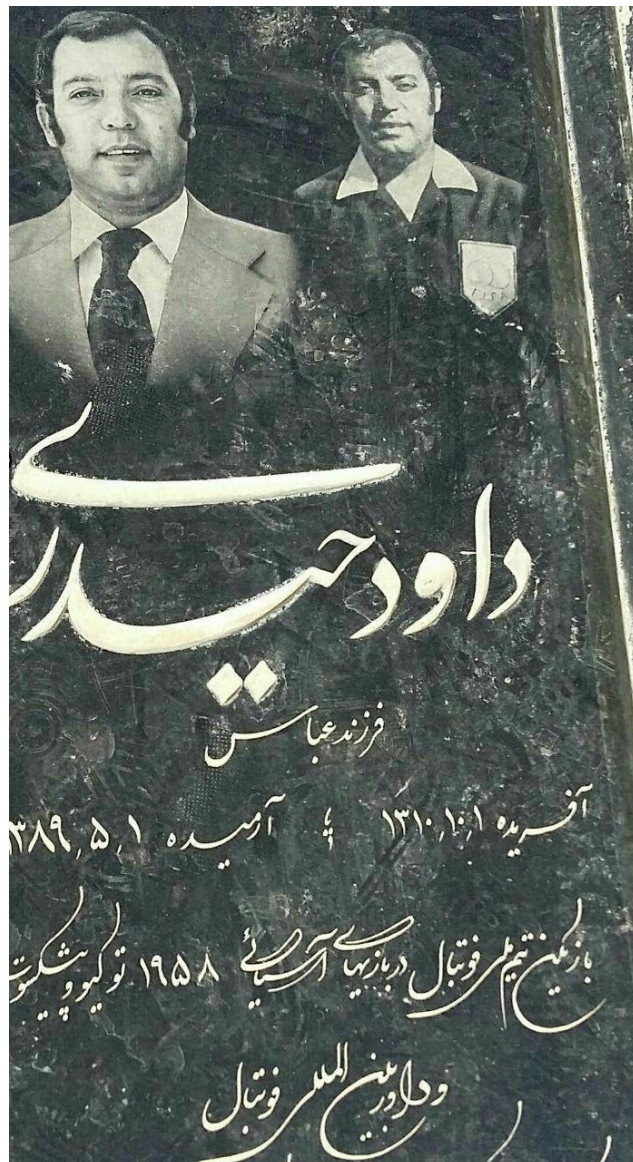 داود حیدری
فرزند عباس
آفریده ۱۳۱۰٫۱۰٫۱ ؛ آرمیده ۱۳۸۹٫۵٫۱
بازیکن تیم ملی فوتبال در بازیهای آسیائی ۱۹۵۸ توکیو و پیشکسوت
و داور بین المللی فوتبال